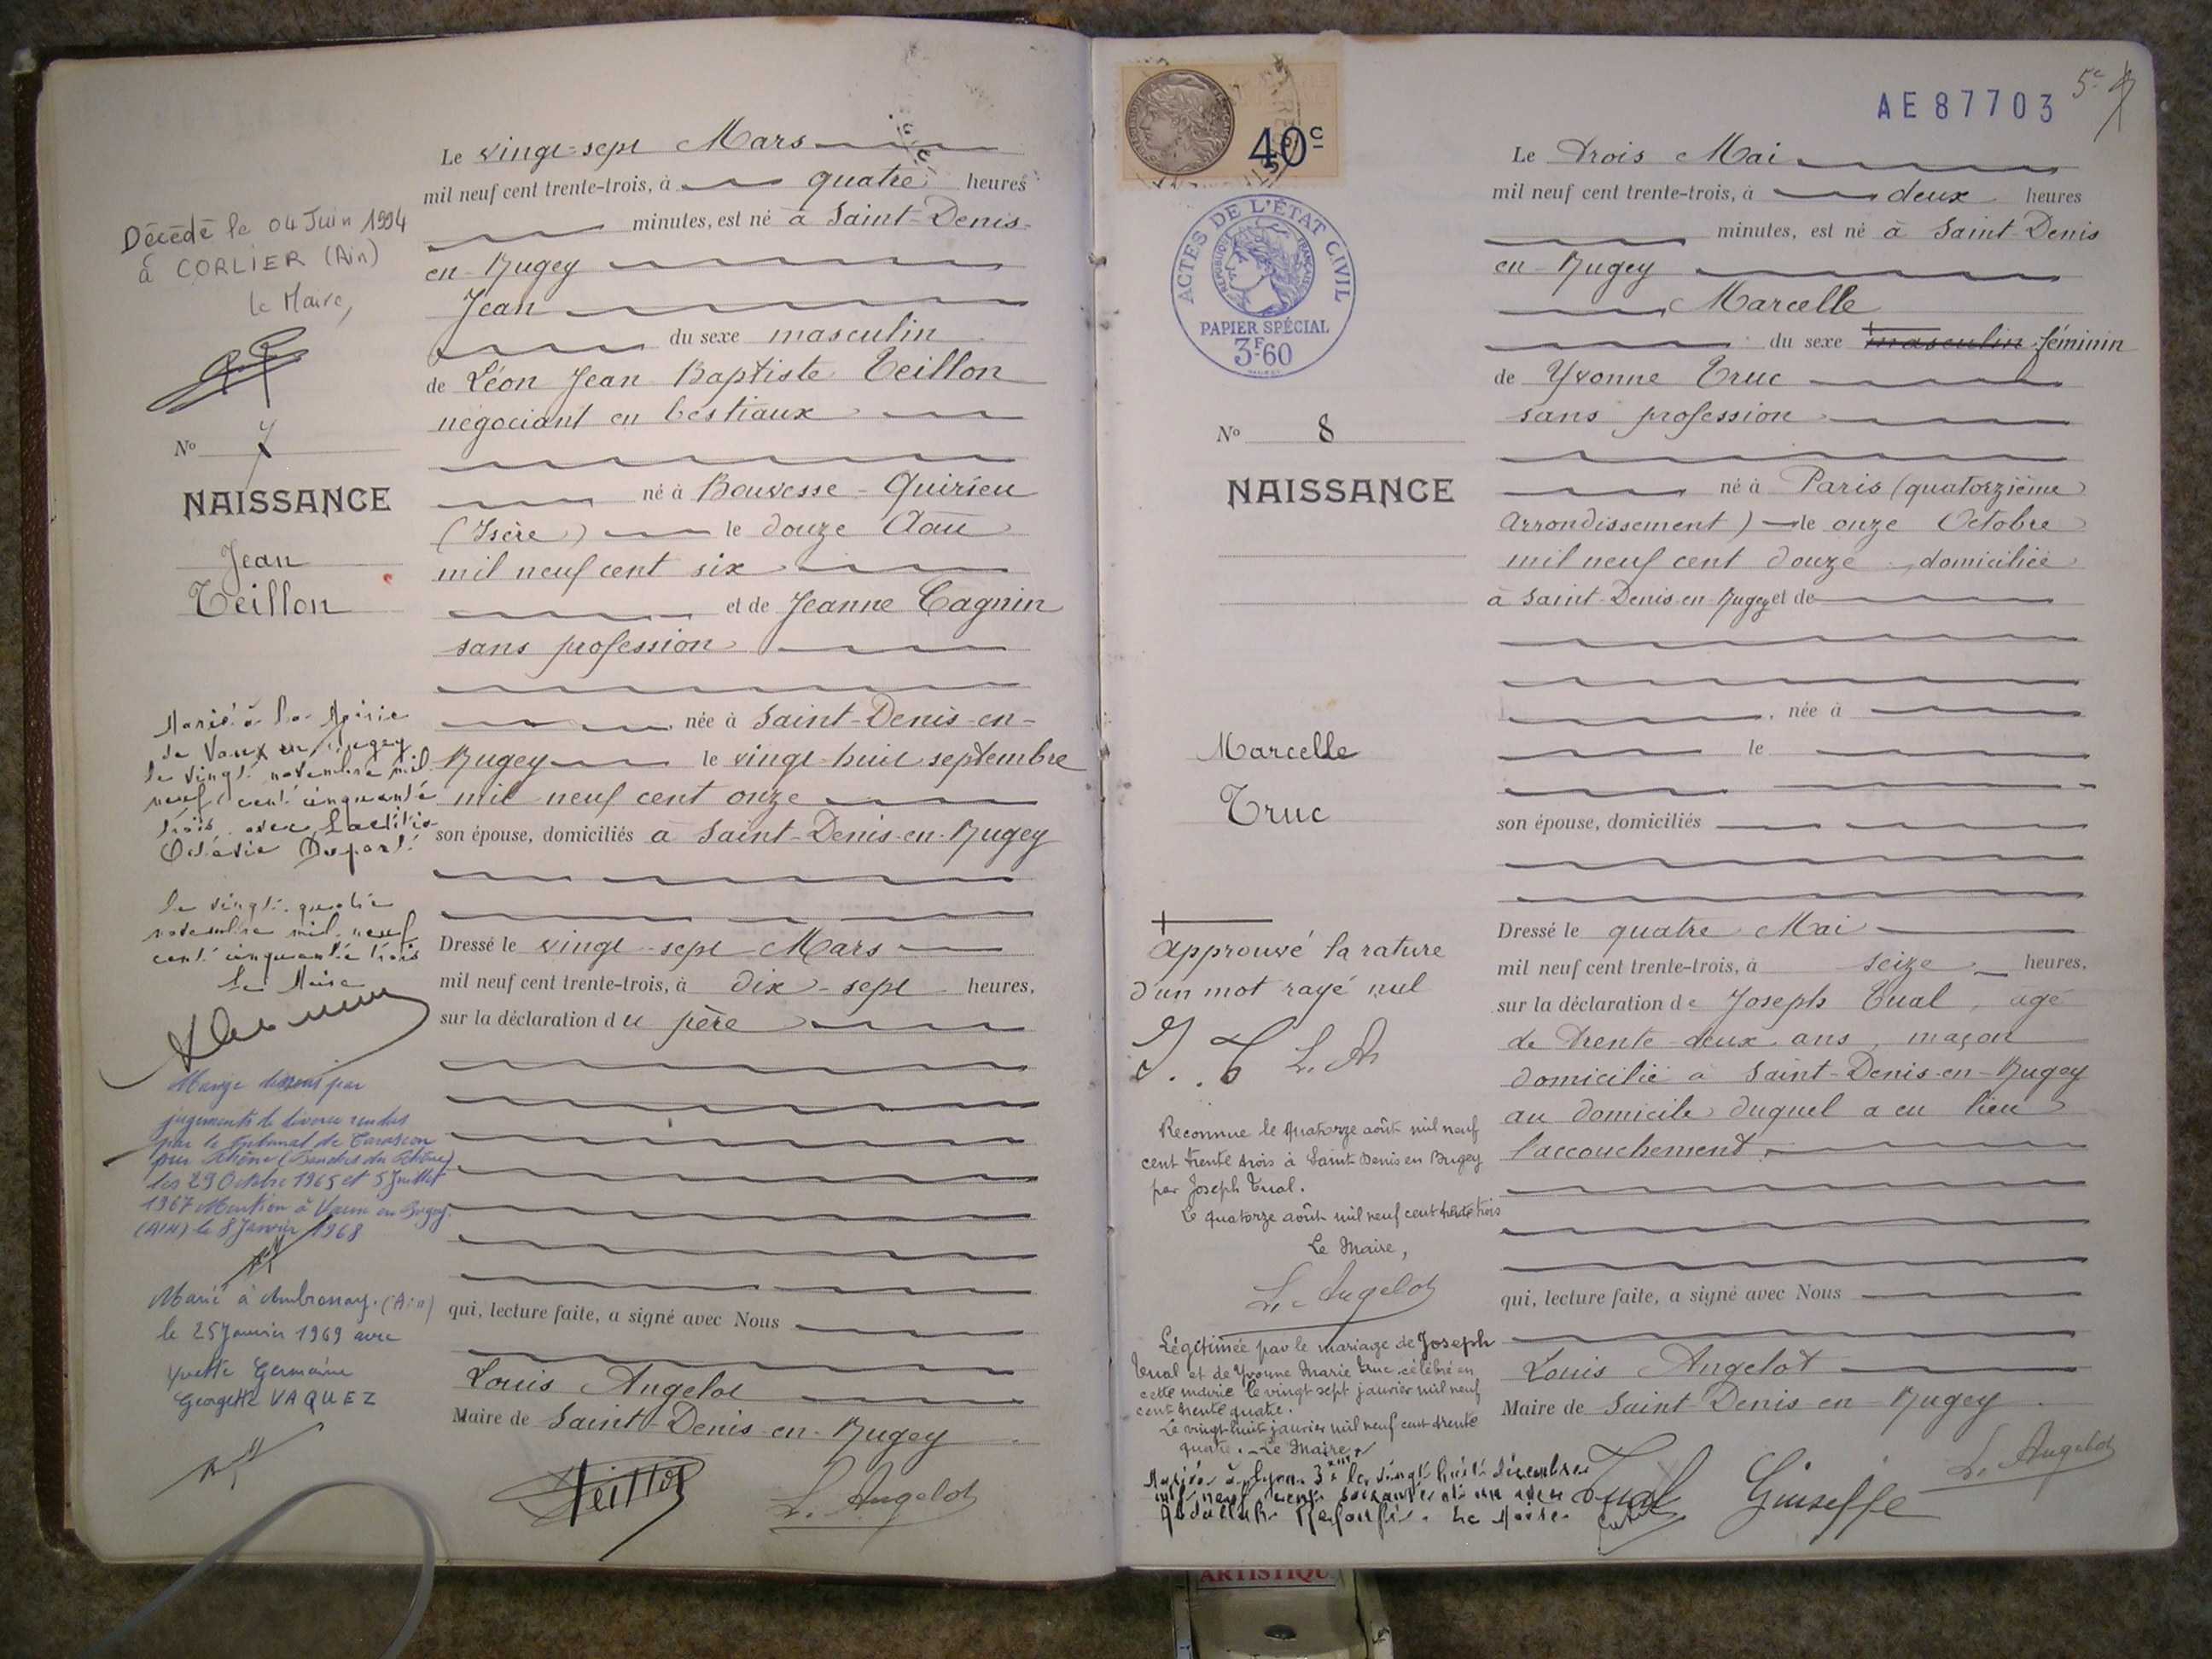 Décédé le 04 Juin 1994
à CORLIER (Ain)
le Maire,
No 7
NAISSANCE
Jean
Teillon
Marié à la Mairie
de Vaux en Bugey
le vingt novembre mil
neuf cent cinquante
trois avec Laetitia
Octavie
le vingt quatre
novembre mil neuf
cent cinquante trois
Le Maire
Mariage dissous par
jugements de divorce rendus
par le Tribunal de Tarascon
sur Rhône (Bouches du Rhône)
les 29 Octobre 1965 et 5 Juillet
1967 Mention à Vaux en Bugey
(AIN) le 8 Janvier 1968
Marié à Ambronay (Ain)
le 25 Janvier 1969 avec
Yvette Germaine
Georgette VAQUEZ
Le vingt-sept Mars
mil neuf cent trente-trois, à quatre heures
minutes, est né à Saint-Denis-
en-Bugey
Jean
du sexe masculin
de Léon Jean Baptiste Teillon
négociant en bestiaux
né à Bouvesse-Quirieu
(Isère) le douze Août
mil neuf cent six
et de Jeanne Cagnin
sans profession
née à Saint-Denis-en-
Bugey le vingt-huit septembre
mil neuf cent onze
son épouse, domiciliés à Saint-Denis-en-Bugey
Dressé le vingt-sept Mars
mil neuf cent trente-trois, à dix-sept heures,
sur la déclaration du père
qui, lecture faite, a signé avec Nous
Louis Angelot
Maire de Saint-Denis-en-Bugey
Teillon
L. Angelot
40c
ACTES DE L'ÉTAT CIVIL
RÉPUBLIQUE FRANÇAISE
PAPIER SPÉCIAL
3F60
AE87703
No 8
NAISSANCE
Marcelle
Truc
Approuvé la rature
d'un mot rayé nul
J. T. L. A
Reconnue le quatorze août mil neuf
cent trente trois à Saint Denis en Bugey
par Joseph Tual.
Le quatorze août mil neuf cent trente trois
Le Maire,
L. Angelot
Légitimée par le mariage de Joseph
Tual et de Yvonne Marie Truc célébré en
cette mairie le vingt sept janvier mil neuf
cent trente quatre.
Le vingt huit janvier mil neuf cent trente
quatre. - Le Maire
Mariée à Lyon 3e le vingt huit décembre
mil neuf cent soixante et un avec
Abdallah Le Maire
Le Trois Mai
mil neuf cent trente-trois, à deux heures
minutes, est né à Saint-Denis
en-Bugey
Marcelle
du sexe masculin féminin
de Yvonne Truc
sans profession
né à Paris (quatorzième
Arrondissement) le onze Octobre
mil neuf cent douze, domiciliée
à Saint-Denis-en-Bugey et de
née à
le
son épouse, domiciliés
Dressé le quatre Mai
mil neuf cent trente-trois, à seize heures,
sur la déclaration de Joseph Tual, agé
de trente-deux ans, maçon
domicilié à Saint-Denis-en-Bugey
au domicile duquel a eu lieu
l'accouchement
qui, lecture faite, a signé avec Nous
Louis Angelot
Maire de Saint Denis-en-Bugey
Tual Giuseppe
L. Angelot
ARTISTIQU